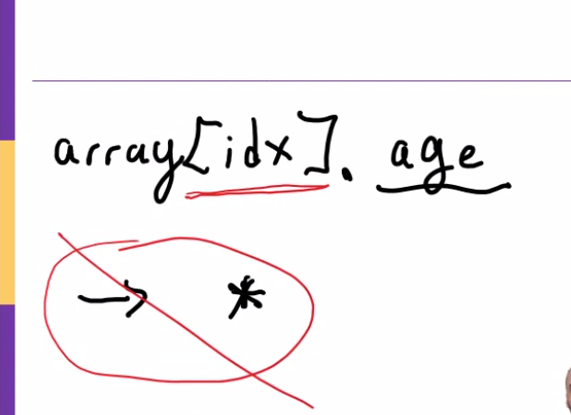 array[idx]. age
→ *